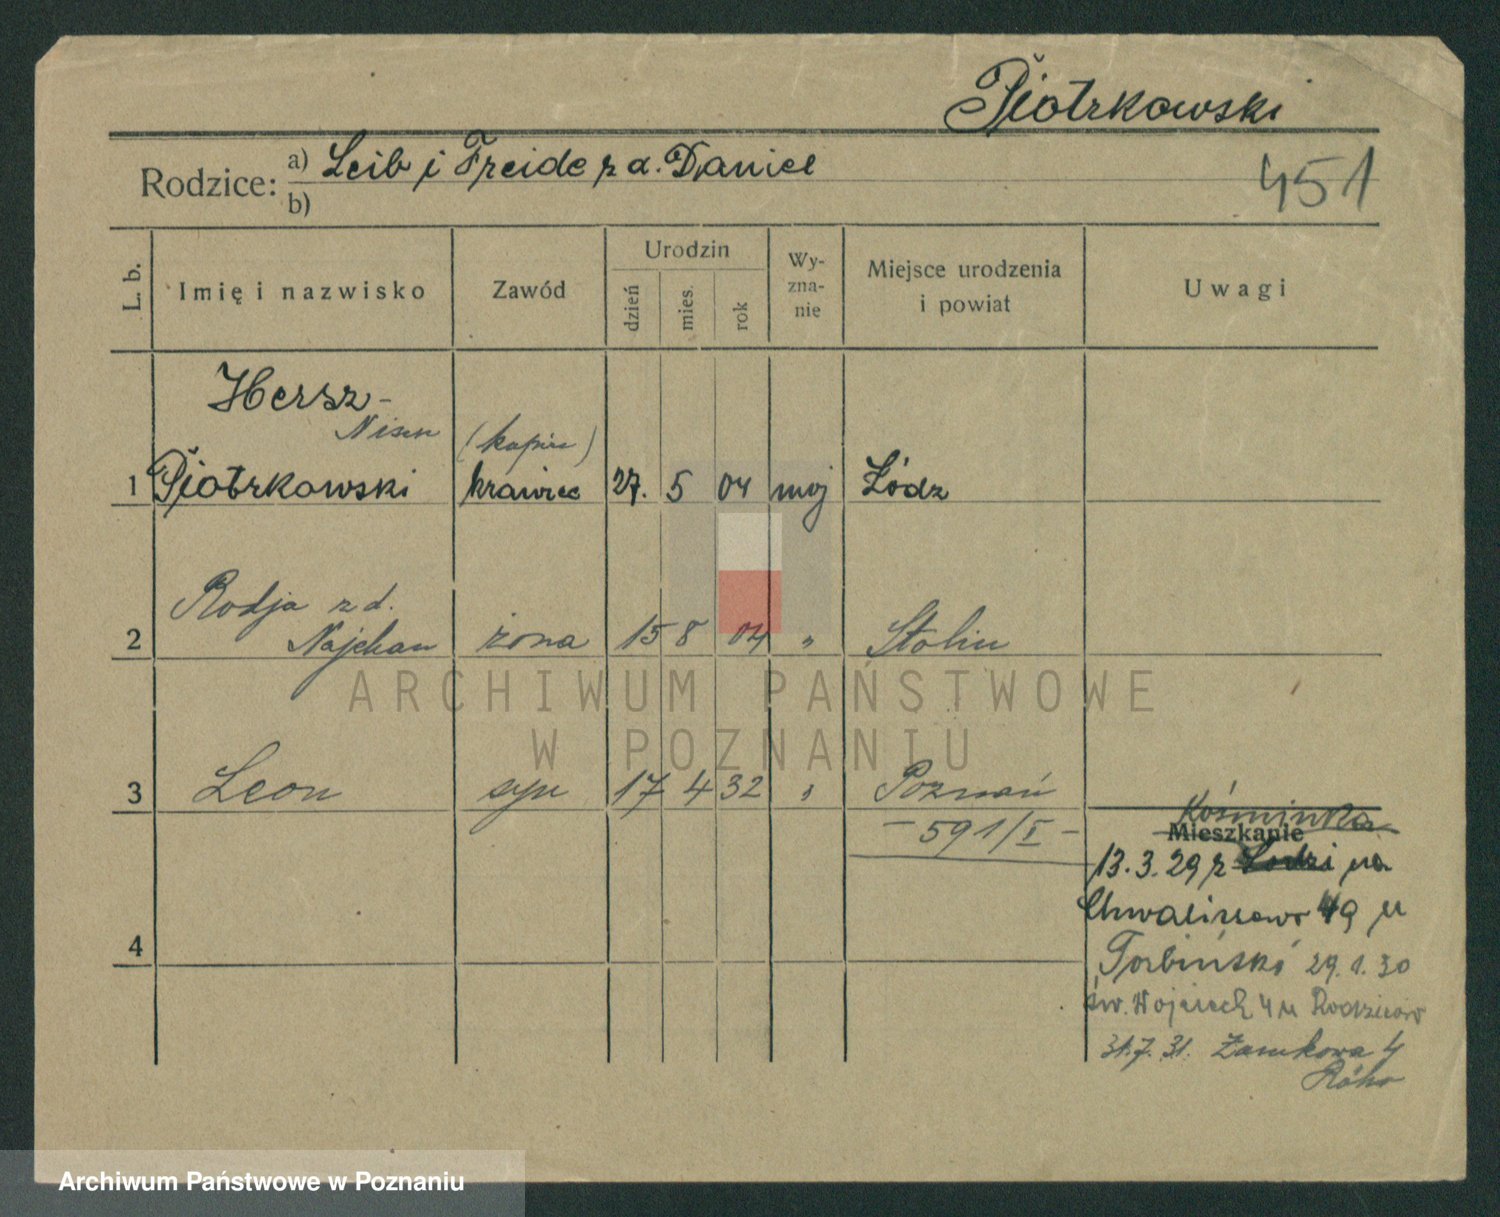 Piotrkowski
Rodzice: a) Leib i Freide z d. Daniel
b)
451
L. b.
Imię i nazwisko
Zawód
Urodzin
dzień
mies.
rok
Wy-
zna-
nie
Miejsce urodzenia
i powiat
Uwagi
Hersz-
Nisen
(kupiec)
1 Piotrkowski krawiec 27. 5 04 moj Łódz
Rodja z d.
2 Najchan żona 15 8 04 " Stolin
ARCHIWUM PAŃSTWOWE
W POZNANIU
3 Leon syn 17 4 32 " Poznań
- 591/I -
Koźminka
Mieszkanie
13.3.29 z Łodzi na
Chwaliszewo 49 u
4
Torbiński 29.1.30
św. Wojciech 4 u Rodziców
31.7.31. Zamkowa 4
Archiwum Państwowe w Poznaniu